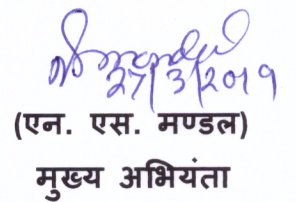 27/3/2019
(एन. एस. मण्डल)
मुख्य अभियंता